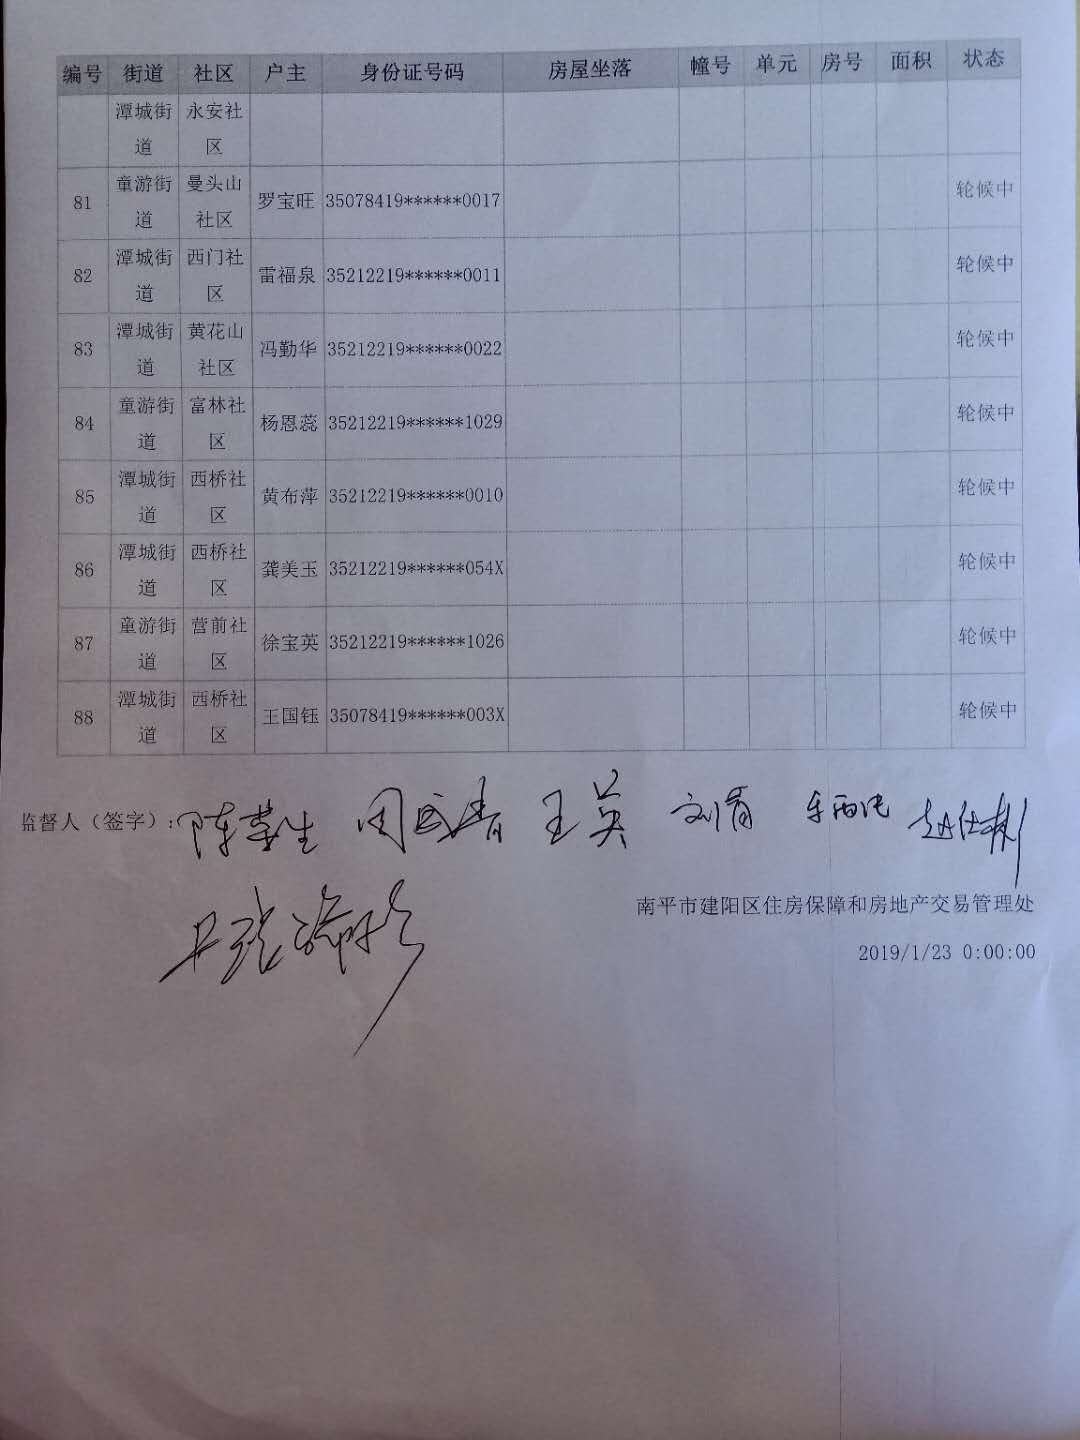 编号 街道 社区 户主 身份证号码 房屋坐落 幢号 单元 房号 面积 状态
潭城街道 永安社区
81 童游街道 曼头山社区 罗宝旺 35078419******0017 轮候中
82 潭城街道 西门社区 雷福泉 35212219******0011 轮候中
83 潭城街道 黄花山社区 冯勤华 35212219******0022 轮候中
84 童游街道 富林社区 杨恩蕊 35212219******1029 轮候中
85 潭城街道 西桥社区 黄布萍 35212219******0010 轮候中
86 潭城街道 西桥社区 龚美玉 35212219******054X 轮候中
87 童游街道 营前社区 徐宝英 35212219******1026 轮候中
88 潭城街道 西桥社区 王国钰 35078419******003X 轮候中
监督人（签字）: 王英
南平市建阳区住房保障和房地产交易管理处
2019/1/23 0:00:00